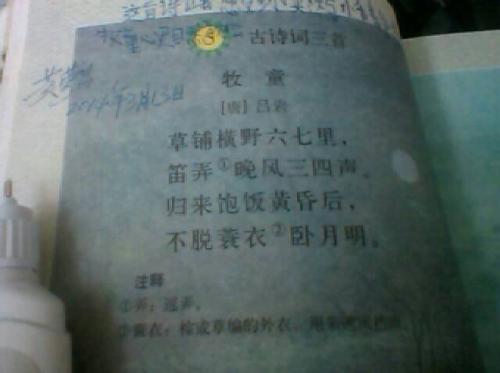 5 古诗词三首
牧童
[唐]吕岩
草铺横野六七里，
笛弄①晚风三四声。
归来饱饭黄昏后，
不脱蓑衣②卧月明。
注释
①弄：逗弄。
②蓑衣：棕或草编的外衣，